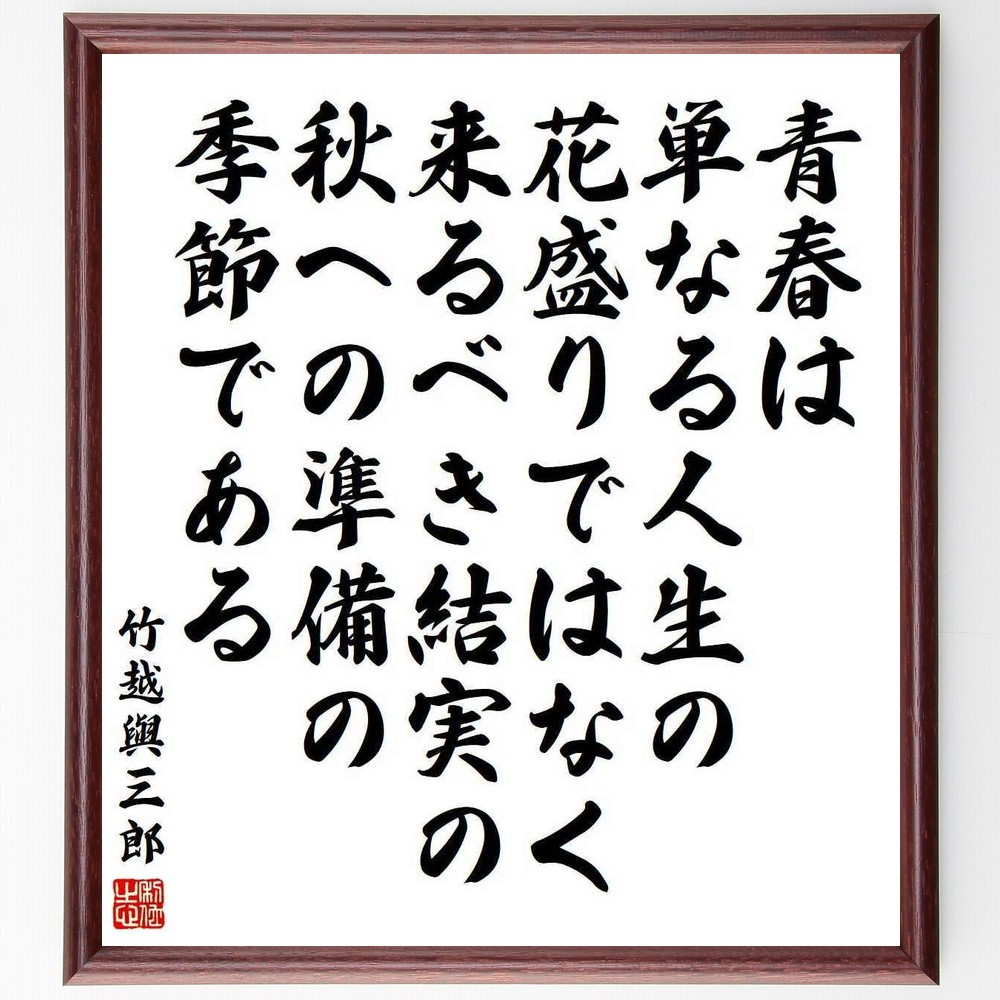 青春は
単なる人生の
花盛りではなく
来るべき結実の
秋への準備の
季節である
竹越與三郎